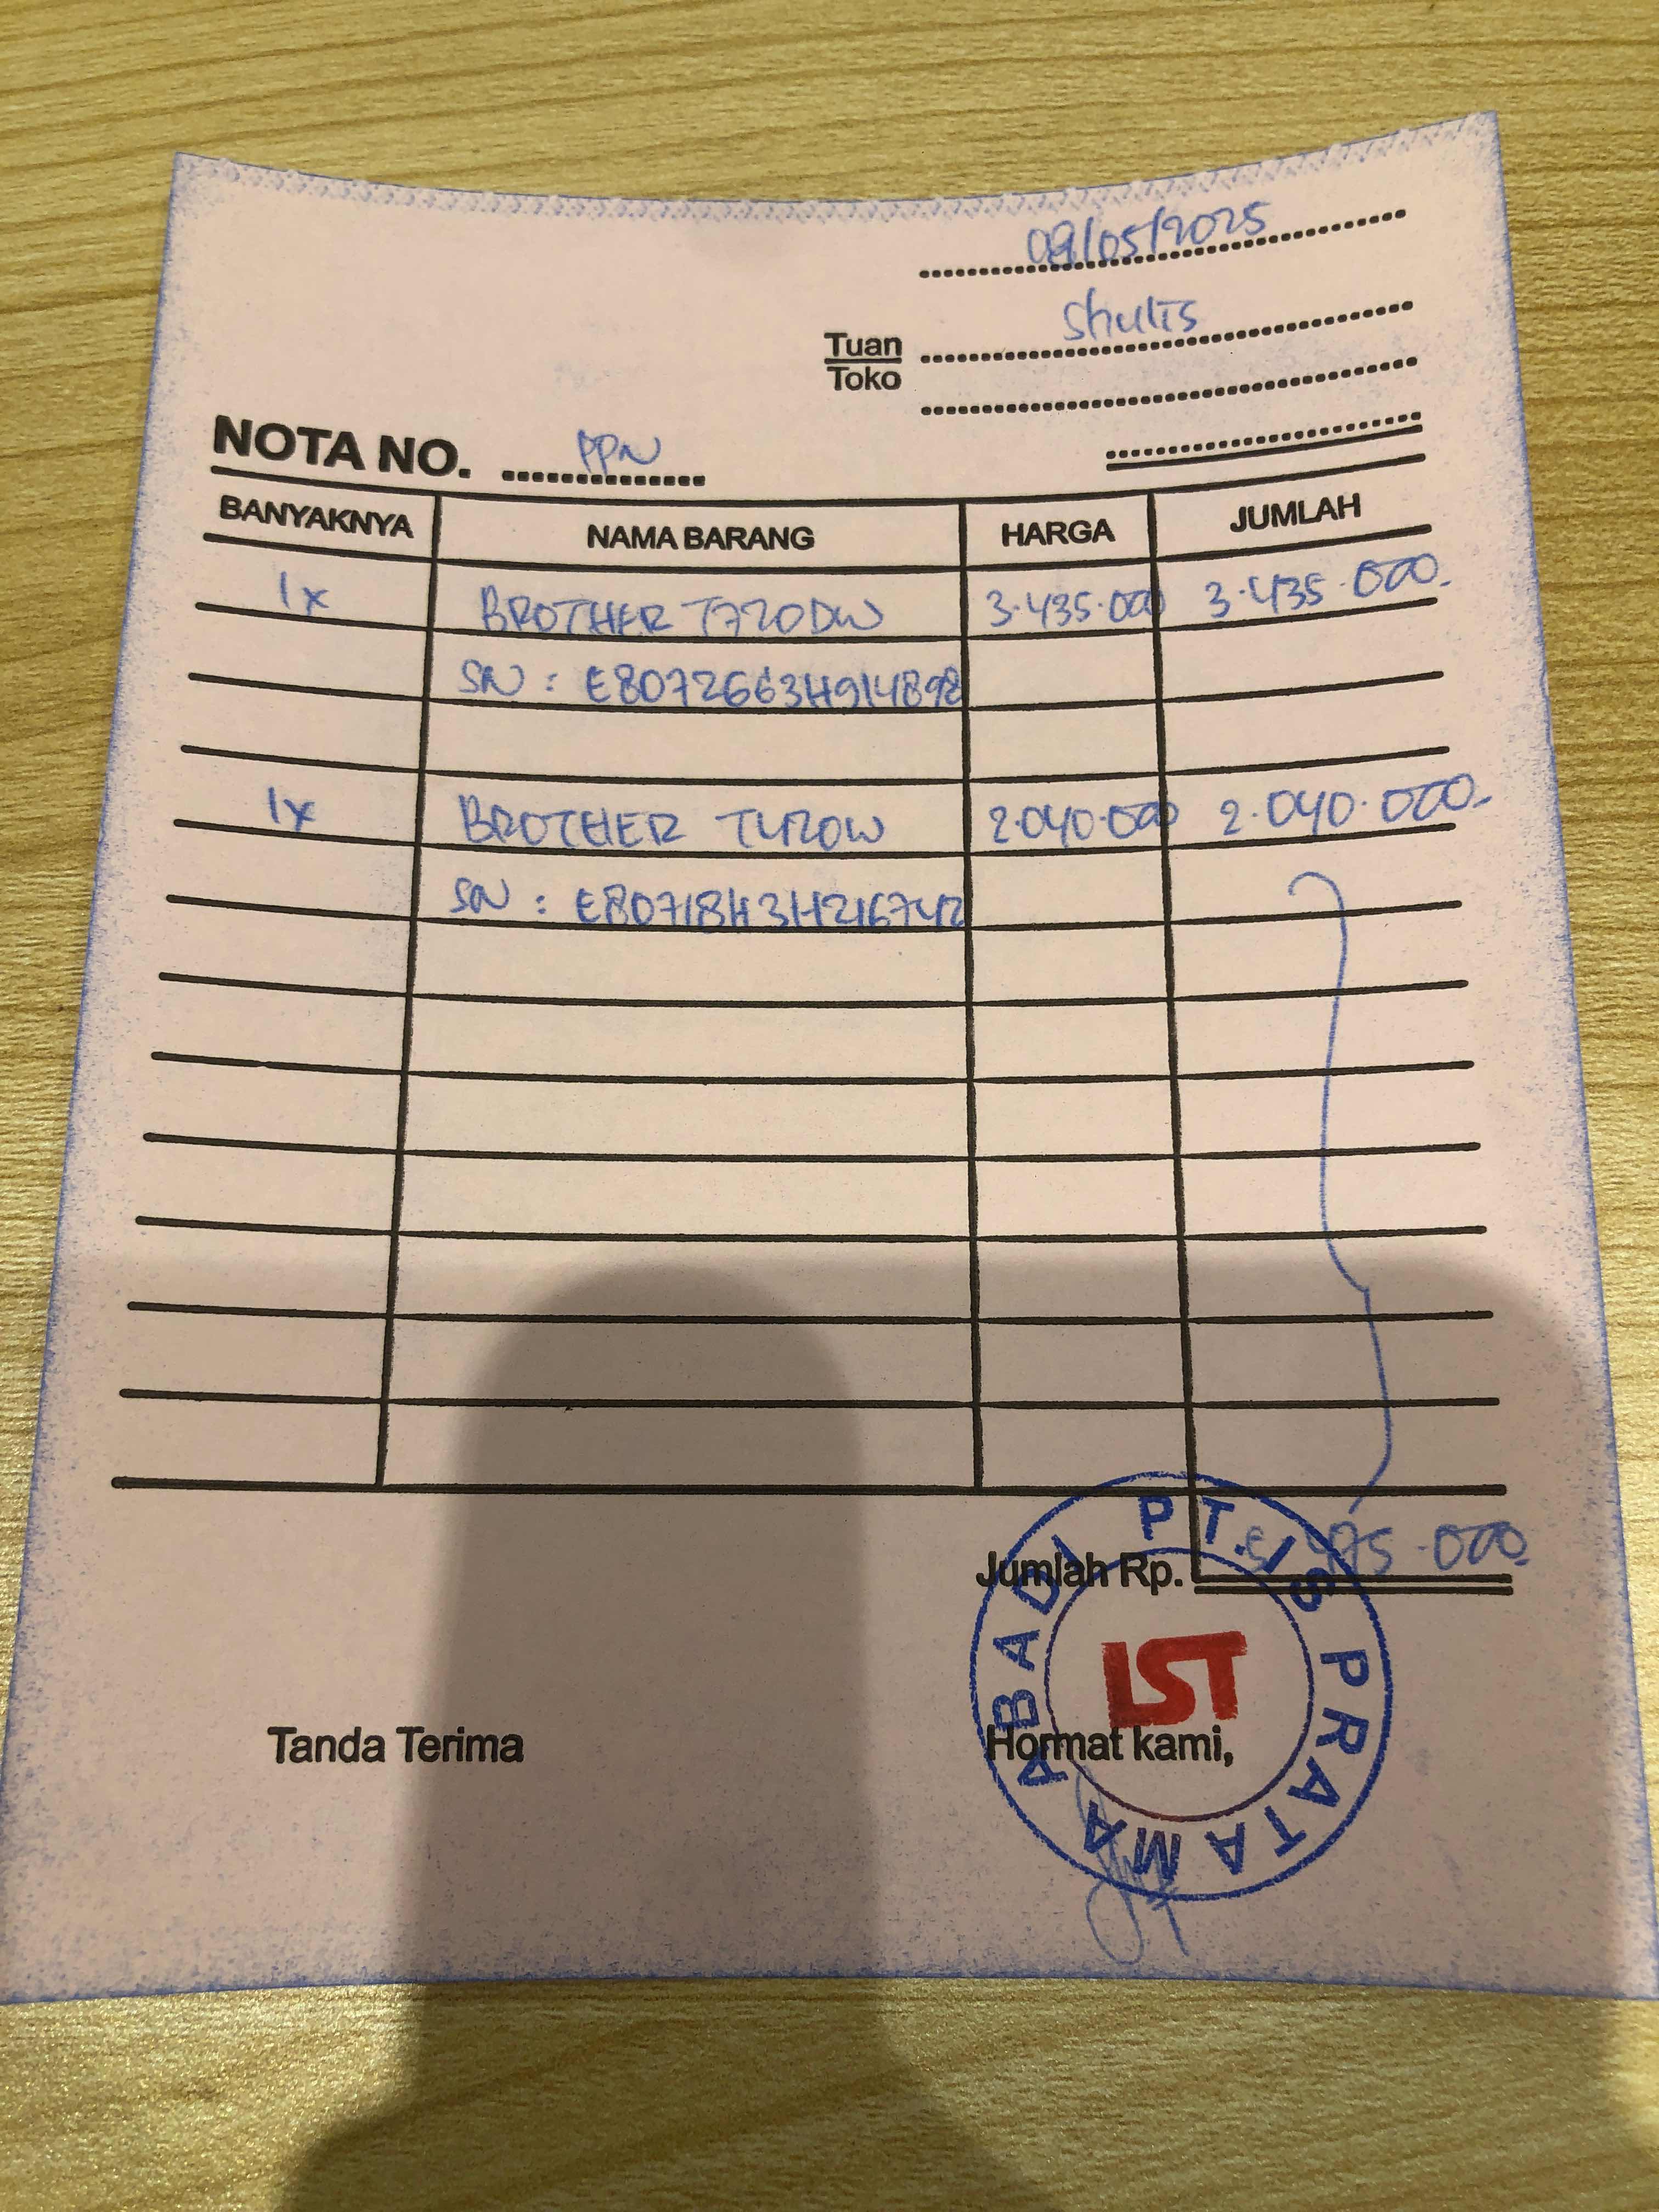 09/05/2025
Tuan Shults
Toko
NOTA NO. PPN
BANYAKNYA NAMA BARANG HARGA JUMLAH
1x BROTHER T720DW 3.435.000 3.435.000.-
SN : E8072663H914898
1x BROTHER T420W 2.040.000 2.040.000.-
SN : E80718H31H216742
Jumlah Rp. 5.475.000
PT. IS PRATAMA ABADI
IST
Tanda Terima Hormat kami,